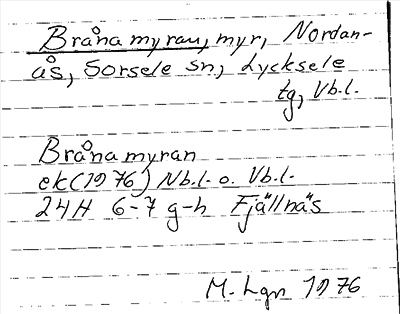 Brånamyran, myr, Nordan-
ås, Sorsele sn, Lycksele
tg, Vb.l.
Brånamyran
ek(1976) Nb.l. o. Vb.l.
24H 6-7 g-h Fjällnäs
M. Lgn 1976